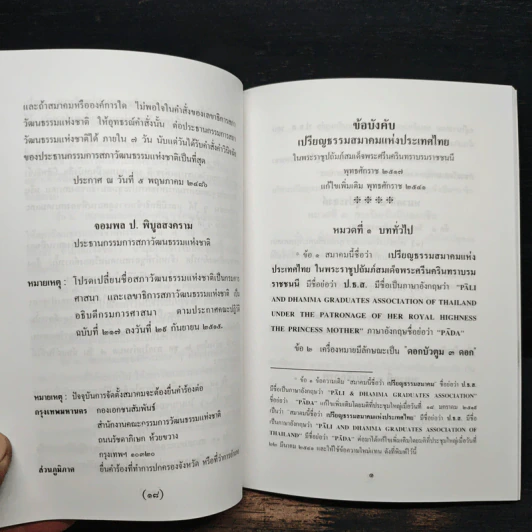 และถ้าสมาคมหรือองค์การใด ไม่พอใจในคำสั่งของเลขาธิการสภา
วัฒนธรรมแห่งชาติ ให้อุทธรณ์คำสั่งนั้น ต่อประธานกรรมการสภา
วัฒนธรรมแห่งชาติได้ ภายใน ๗ วัน นับแต่วันได้รับคำสั่งคำวินิจฉัย
ของประธานกรรมการสภาวัฒนธรรมแห่งชาติเป็นที่สุด
ประกาศ ณ วันที่ ๕ พฤษภาคม ๒๔๘๖
จอมพล ป. พิบูลสงคราม
ประธานกรรมการสภาวัฒนธรรมแห่งชาติ
หมายเหตุ : โปรดเปลี่ยนชื่อสภาวัฒนธรรมแห่งชาติเป็นกรมการ
ศาสนา และเลขาธิการสภาวัฒนธรรมแห่งชาติ เป็น
อธิบดีกรมการศาสนา ตามประกาศคณะปฏิวัติ
ฉบับที่ ๒๑๗ ลงวันที่ ๒๙ กันยายน ๒๕๑๕.
หมายเหตุ : ปัจจุบันการจัดตั้งสมาคมจะต้องยื่นคำร้องต่อ
กรุงเทพมหานคร กองเอกชนสัมพันธ์
สำนักงานคณะกรรมการวัฒนธรรมแห่งชาติ
ถนนรัชดาภิเษก ห้วยขวาง
กรุงเทพฯ ๑๐๓๒๐
ส่วนภูมิภาค ยื่นคำร้องที่ทำการปกครองจังหวัด หรือที่ว่าการอำเภอ
(๑๘)
ข้อบังคับ
เปรียญธรรมสมาคมแห่งประเทศไทย
ในพระราชูปถัมภ์สมเด็จพระศรีนครินทราบรมราชชนนี
พุทธศักราช ๒๕๑๗
แก้ไขเพิ่มเติม พุทธศักราช ๒๕๔๑
หมวดที่ ๑ บททั่วไป
* ข้อ ๑ สมาคมนี้ชื่อว่า เปรียญธรรมสมาคมแห่ง
ประเทศไทย ในพระราชูปถัมภ์สมเด็จพระศรีนครินทราบรม
ราชชนนี มีชื่อย่อว่า ป.ธ.ส. มีชื่อเป็นภาษาอังกฤษว่า "PĀLI
AND DHAMMA GRADUATES ASSOCIATION OF THAILAND
UNDER THE PATRONAGE OF HER ROYAL HIGHNESS
THE PRINCESS MOTHER" ภาษาอังกฤษชื่อย่อว่า "PĀDA"
ข้อ ๒ เครื่องหมายมีลักษณะเป็น "ดอกบัวตูม ๓ ดอก"
* ข้อ ๑ ข้อความเดิม "สมาคมนี้ชื่อว่า เปรียญธรรมสมาคม" ชื่อย่อว่า ป.ธ.ส.
มีชื่อเป็นภาษาอังกฤษว่า "PĀLI & DHAMMA GRADUATES ASSOCIATION"
ชื่อย่อว่า "PĀDA" แก้ไขเพิ่มเติมโดยมติที่ประชุมใหญ่เมื่อวันที่ ๑๘ มกราคม
เป็นว่า "สมาคมนี้ชื่อว่า เปรียญธรรมสมาคมแห่งประเทศไทย" มีชื่อย่อว่า ป.ธ.ส.
มีชื่อเป็นภาษาอังกฤษว่า "PĀLI AND DHAMMA GRADUATES ASSOCIATION OF
THAILAND" มีชื่อย่อว่า "PĀDA" ต่อมาได้แก้ไขเพิ่มเติมโดยมติที่ประชุมใหญ่เมื่อวันที่
๒๒ มีนาคม ๒๕๔๑ และให้ใช้ข้อความใหม่แทน ดังที่พิมพ์ไว้นี้
๑